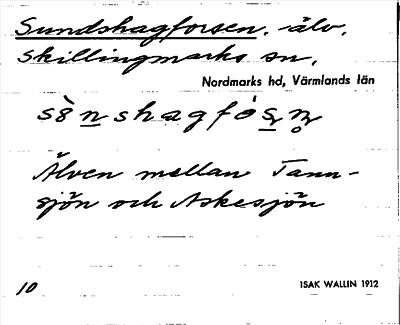 Sundshagforsen. -älv.
Skillingmarks sn,
Nordmarks hd, Värmlands län
Älven mellan Tann-
sjön och Askesjön
10
ISAK WALLIN 1912